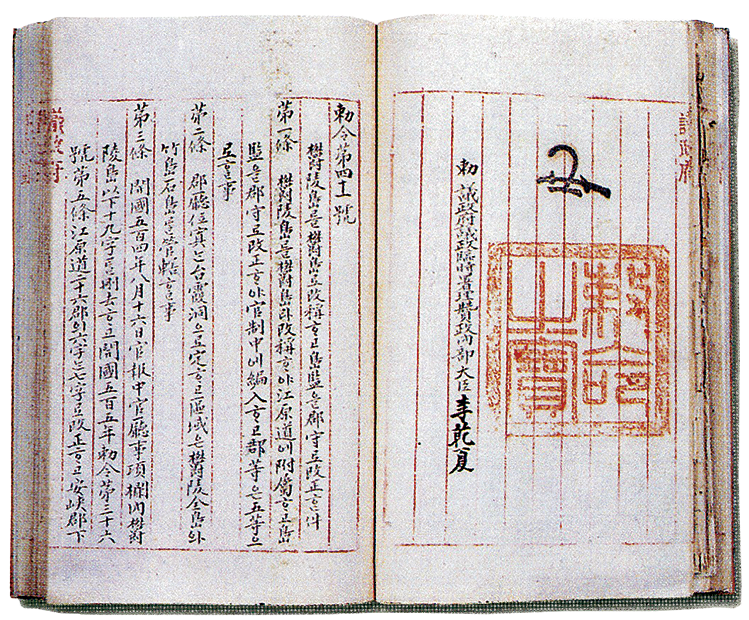 議政府
勅 議政府議政臨時署理贊政內部大臣 李乾夏
勅命之寶
勅令第四十一號
欝陵島를欝島로改稱ᄒᆞ고島監을郡守로改正ᄒᆞᆫ件
第一條 欝陵島를欝島라改稱ᄒᆞ야江原道에附屬ᄒᆞ고島
監을郡守로改正ᄒᆞ야官制中에編入ᄒᆞ고郡等은五等으
로ᄒᆞᆯ事
第二條 郡廳位寘ᄂᆞᆫ台霞洞으로定ᄒᆞ고區域은欝陵全島와
竹島石島를管轄ᄒᆞᆯ事
第三條 開國五百四年八月十六日官報中官廳事項欄內欝
陵島以下十九字를刪去ᄒᆞ고開國五百五年勅令第三十六
號第五條江原道二十六郡의六字ᄂᆞᆫ七字로改正ᄒᆞ고安峽郡下
議政府